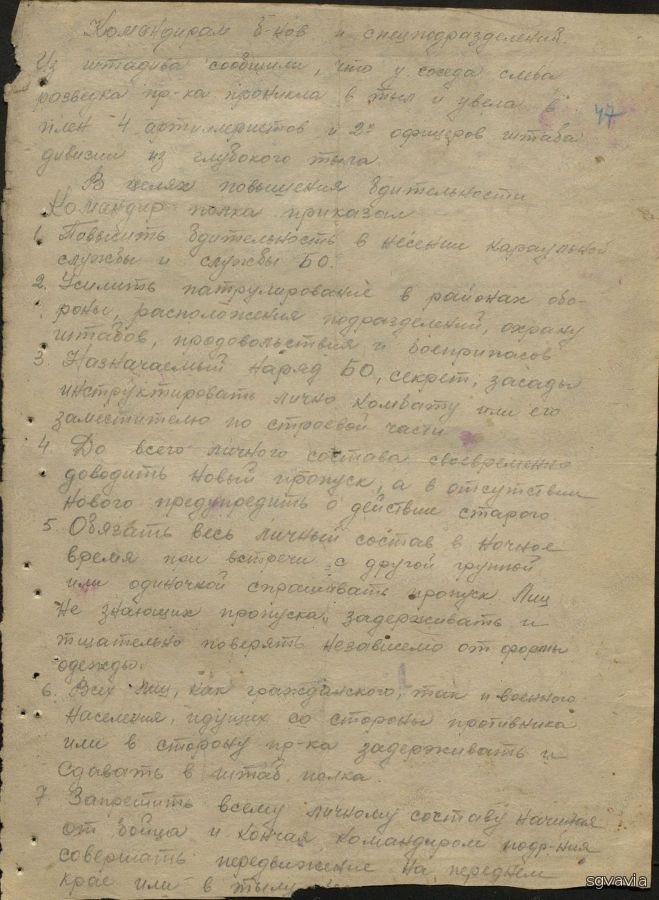 Командирам б-нов и спецподразделений.
Из штадива сообщили, что у соседа слева
разведка пр-ка проникла в тыл и увела в
47
плен 4 артиллеристов и 2х офицеров штаба
дивизии из глубокого тыла
В целях повышения бдительности
Командир полка приказал
1. Повысить бдительность в несении караульной
службы и службы БО.
2. Усилить патрулирование в районах обо-
роны, расположения подразделений, охрану
штабов, продовольствия и боеприпасов
3 Назначаемый наряд БО, секрет, засады
инструктировать лично комбату или его
заместителю по строевой части
4 До всего личного состава своевременно
доводить новый пропуск, а в отсутствии
нового предупредить о действие старого
5. Обязать весь личный состав в ночное
время при встрече с другой группой
или одиночкой спрашивать пропуск Лиц
не знающих пропуска, задерживать и
тщательно поверять независемо от формы
одежды.
6. Всех лиц, как гражданского, так и военного
населения, идущих со стороны противника
или в сторону пр-ка задерживать и
сдавать в штаб полка.
7 Запретить всему личному составу начиная
от бойца и кончая командиром подр-ния
совершать передвижение на переднем
крае или в тылу
sgvavia